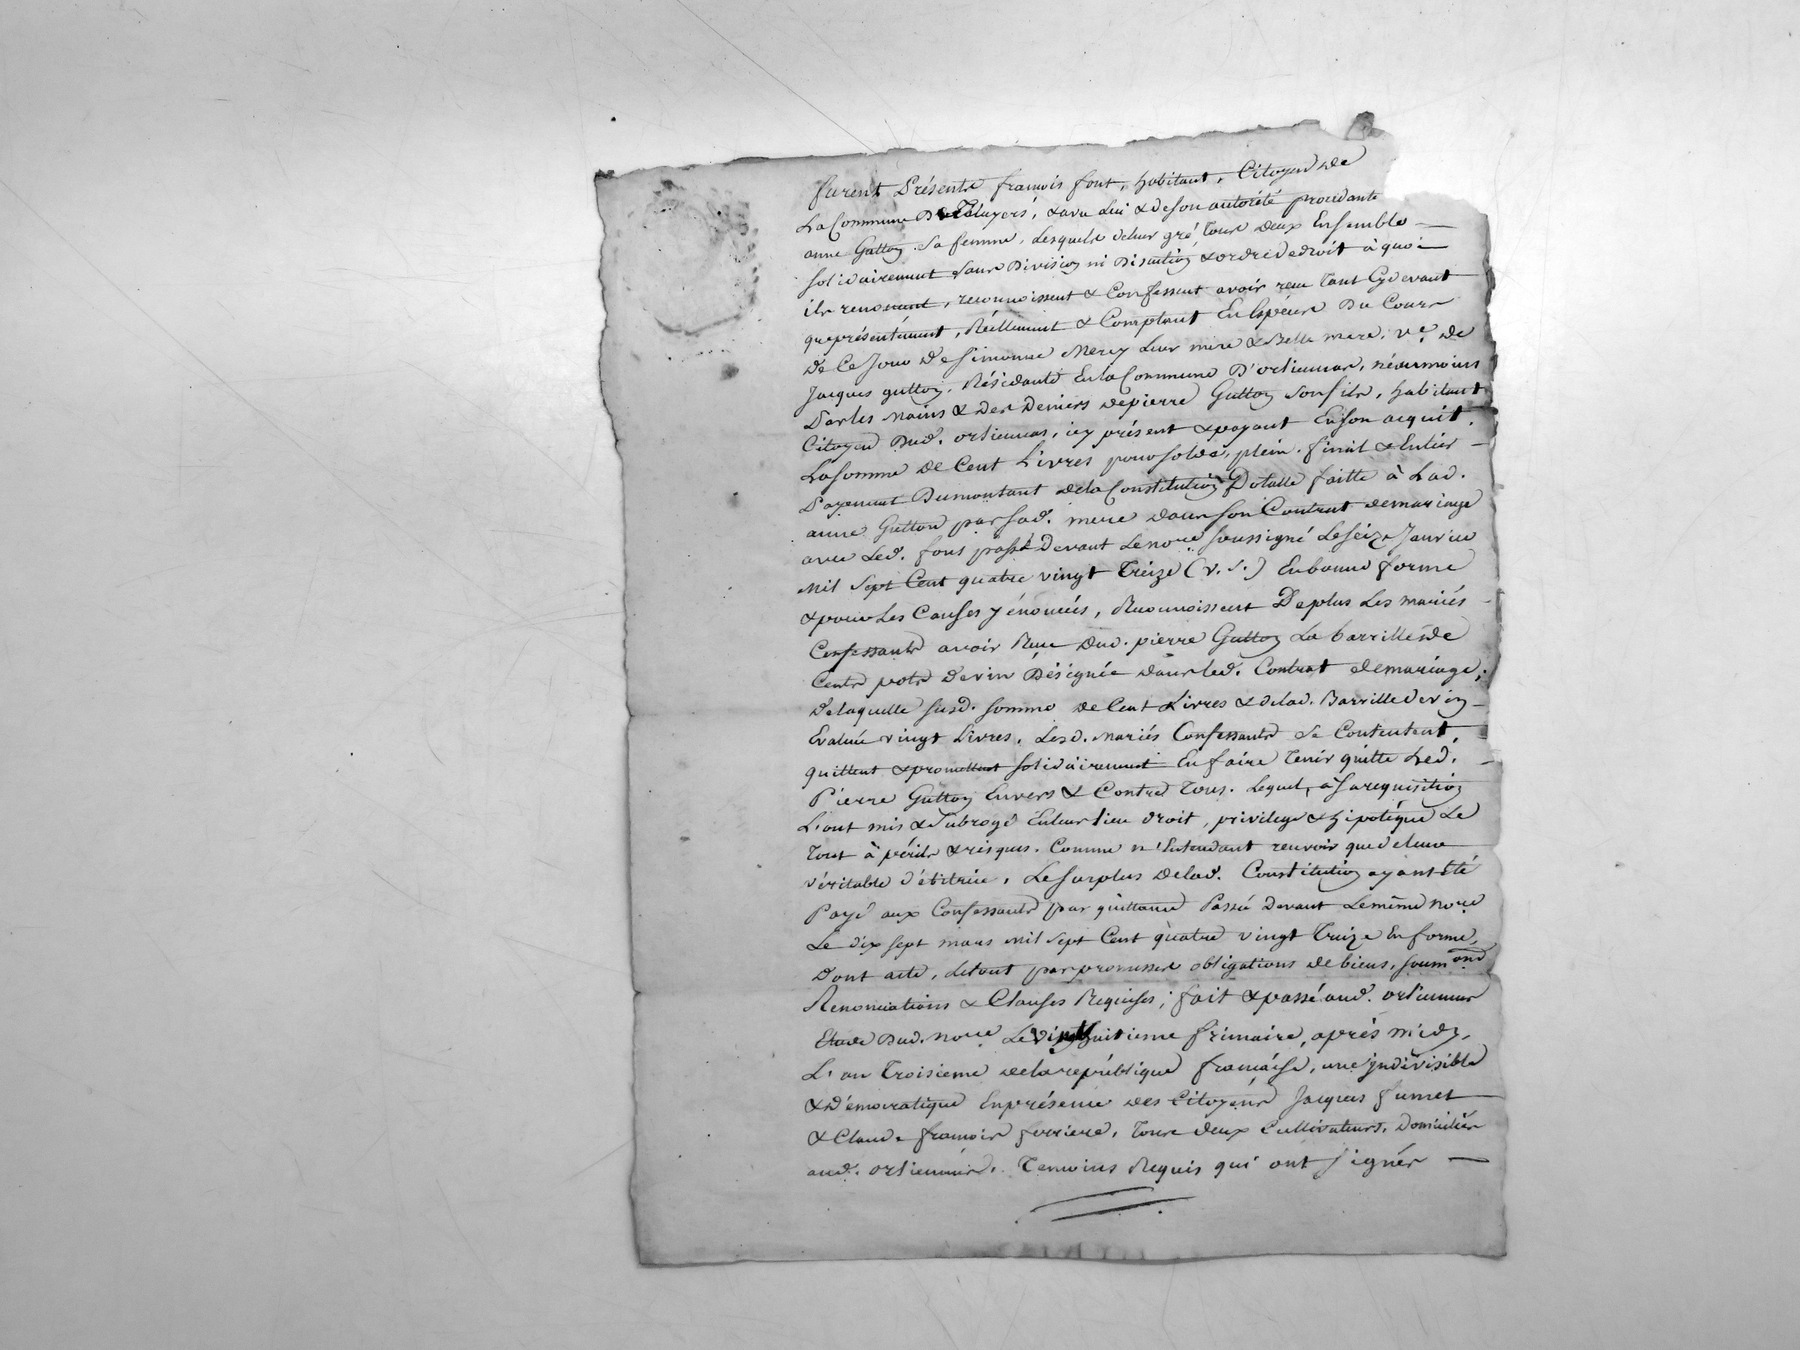 furent Présents françois font, habitant, Citoyen de
La Commune De Thuyers, & avec Lui & de son autorité procédante
anne Gutton sa femme, Lesquels de leur gré, tous deux Ensemble
solidairement sans Division ni Discution & ordre de droit à quoi
ils renoncent, reconnoissent & Confessent avoir reçu tant Cydevant
que présentement, Réellement & Comptant En Espéces Du Cours
De Ce Jour De Simonne Mercy Leur mere & Belle mere, Ve. de
Jacques gutton, Résidante En la Commune D'orliennas, néanmoins
Par les mains & Des Deniers de pierre Gutton son fils, habitant
Citoyen Dud. orliennas, icy présent & payant En son acquit,
La somme de Cent Livres pour solde, plein, finit & Entier
Payement Du montant de la Constitution Dotalle faitte à Lad.
anne Gutton par sad. mere dans son Contrat de mariage
avec Led. fons passé Devant Le nore soussigné Le seize Janvier
mil sept Cent quatre vingt Treize (v. s.) En bonne forme
& pour Les Causes y énoncées, Reconnoissent De plus Les mariés
Confessants avoir Reçu Dud. pierre Gutton La barrille de
Cents pots de vin Désignée dans led. Contrat de mariage;
De laquelle susd. somme de Cent Livres & de lad. Barrille de vin
Evaluée vingt Livres, Lesd. mariés Confessants se Contentent,
quittent & promettent solidairement En faire tenir quitte Led.
Pierre Gutton Envers & Contre Tous. Lequel, à sa requisition
L'ont mis & subrogé En leur lieu droit, privilege & hipotéque Le
tout à périls & risques. Comme n'Entendant recevoir que de leur
véritable débitrice, Le surplus de lad. Constitution ayant été
Payé aux Confessants par quittance Passée Devant Le même nore
Le dix sept mars mil sept Cent quatre vingt Treize En forme,
Dont acte, Le tout par promesses obligations de biens, soumons
Renonciations & Clauses Requises; fait & passé aud. orliennas
Etude Dud. nore Le vingt huitieme frimaire, aprés midy,
L'an Troisieme de la république française, une indivisible
& démocratique En présence des Citoyens Jacques fumet
& Claude françois ferriere, tous deux Cultivateurs, Domiciliés
aud. orliennas, Temoins Requis qui ont signés